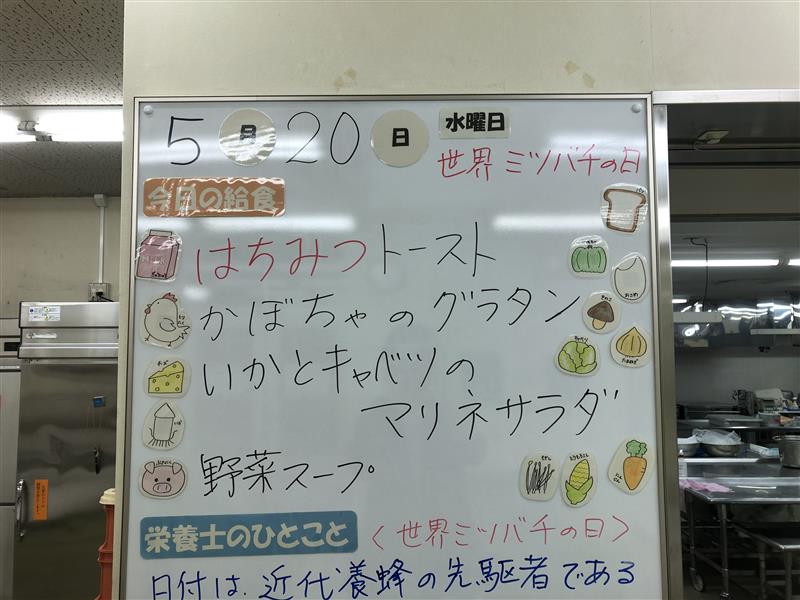 5月20日 水曜日
世界ミツバチの日
今日の給食
はちみつトースト
かぼちゃのグラタン
いかとキャベツの
マリネサラダ
野菜スープ
栄養士のひとこと 〈世界ミツバチの日〉
日付は、近代養蜂の先駆者である